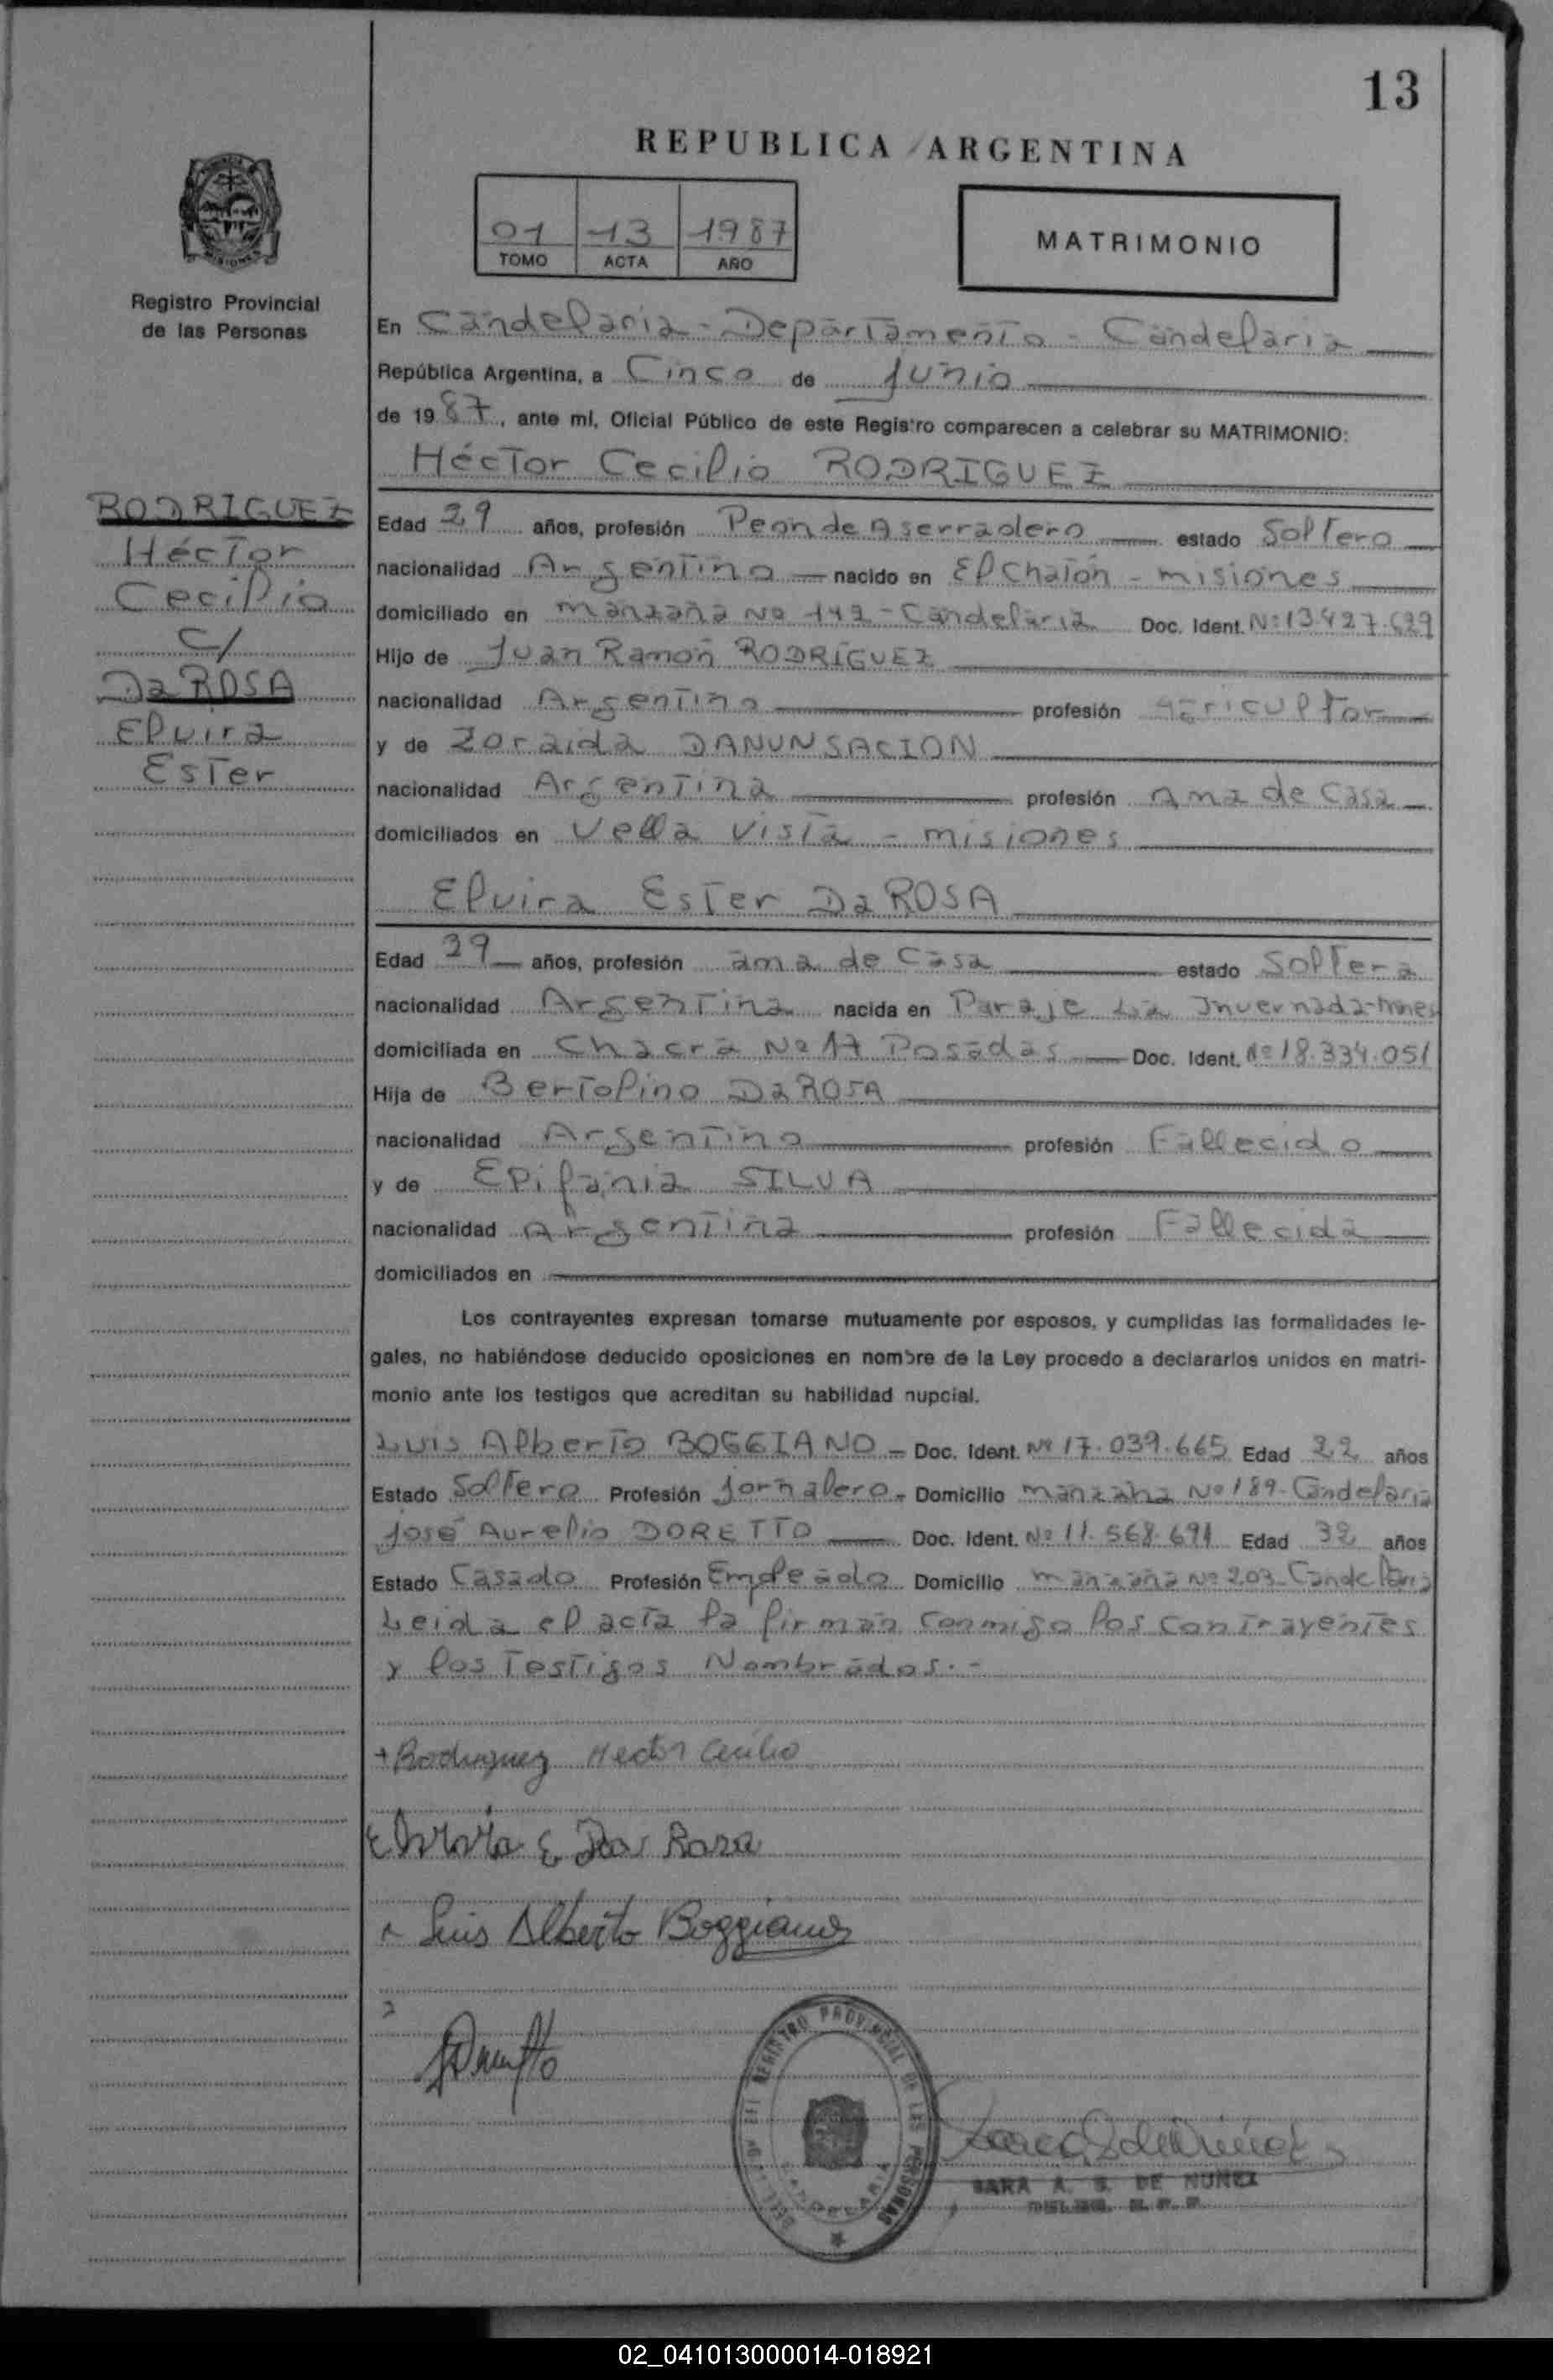 13
REPUBLICA ARGENTINA
01 13 1987
TOMO ACTA AÑO
MATRIMONIO
Registro Provincial
de las Personas
En Candelaria - Departamento - Candelaria
República Argentina, a Cinco de junio
de 1987, ante mí, Oficial Público de este Registro comparecen a celebrar su MATRIMONIO:
Héctor Cecilio RODRIGUEZ
RODRIGUEZ
Héctor
Cecilio
C/
Da ROSA
Elvira
Ester
Edad 29 años, profesión Peon de Aserradero estado Soltero
nacionalidad Argentino nacido en El Chatón - misiones
domiciliado en manzana No 142 - Candelaria Doc. Ident. Nº 13.427.629
Hijo de Juan Ramón RODRIGUEZ
nacionalidad Argentino profesión agricultor
y de Zoraida DANUNSACION
nacionalidad Argentina profesión ama de Casa
domiciliados en Vella Vista - misiones
Elvira Ester Da ROSA
Edad 29 años, profesión ama de Casa estado Soltera
nacionalidad Argentina nacida en Paraje La Invernada-Mnes
domiciliada en Chacra No 17 Posadas Doc. Ident. Nº 18.334.051
Hija de Bertolino Da ROSA
nacionalidad Argentino profesión Fallecido
y de Epifania SILVA
nacionalidad Argentina profesión Fallecida
domiciliados en
Los contrayentes expresan tomarse mutuamente por esposos, y cumplidas las formalidades le-
gales, no habiéndose deducido oposiciones en nombre de la Ley procedo a declararlos unidos en matri-
monio ante los testigos que acreditan su habilidad nupcial.
Luis Alberto BOGGIANO - Doc. Ident. Nº 17.039.665 Edad 22 años
Estado Soltero Profesión Jornalero - Domicilio manzana No 189 - Candelaria
José Aurelio DORETTO Doc. Ident. Nº 11.568.691 Edad 32 años
Estado Casado Profesión Empleado Domicilio manzana Nº 203 Candelaria
Leida el acta la firman conmigo los contrayentes
y los Testigos Nombrados.-
+ Rodriguez Hector Cecilio
Elvira E Da Rosa
Luis Alberto Boggiano
REGISTRO PROVINCIAL DE LAS PERSONAS
CANDELARIA
SARA A. S. DE NUÑEZ
02_041013000014-018921